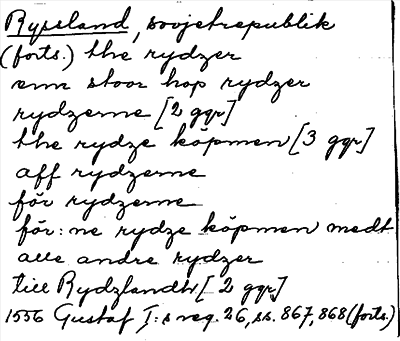 Ryssland, sovjetrepublik
(forts.) the rydzer
enn stoor hop rydzer
rydzerne [2 ggr]
the rydze köpmen [3 ggr]
aff rydzerne
för rydzerne
för:ne rydze köpmen medt
alle andre rydzer
till Rydzlandh [2 ggr]
1556 Gustaf I:s reg. 26, ss. 867, 868 (forts.)